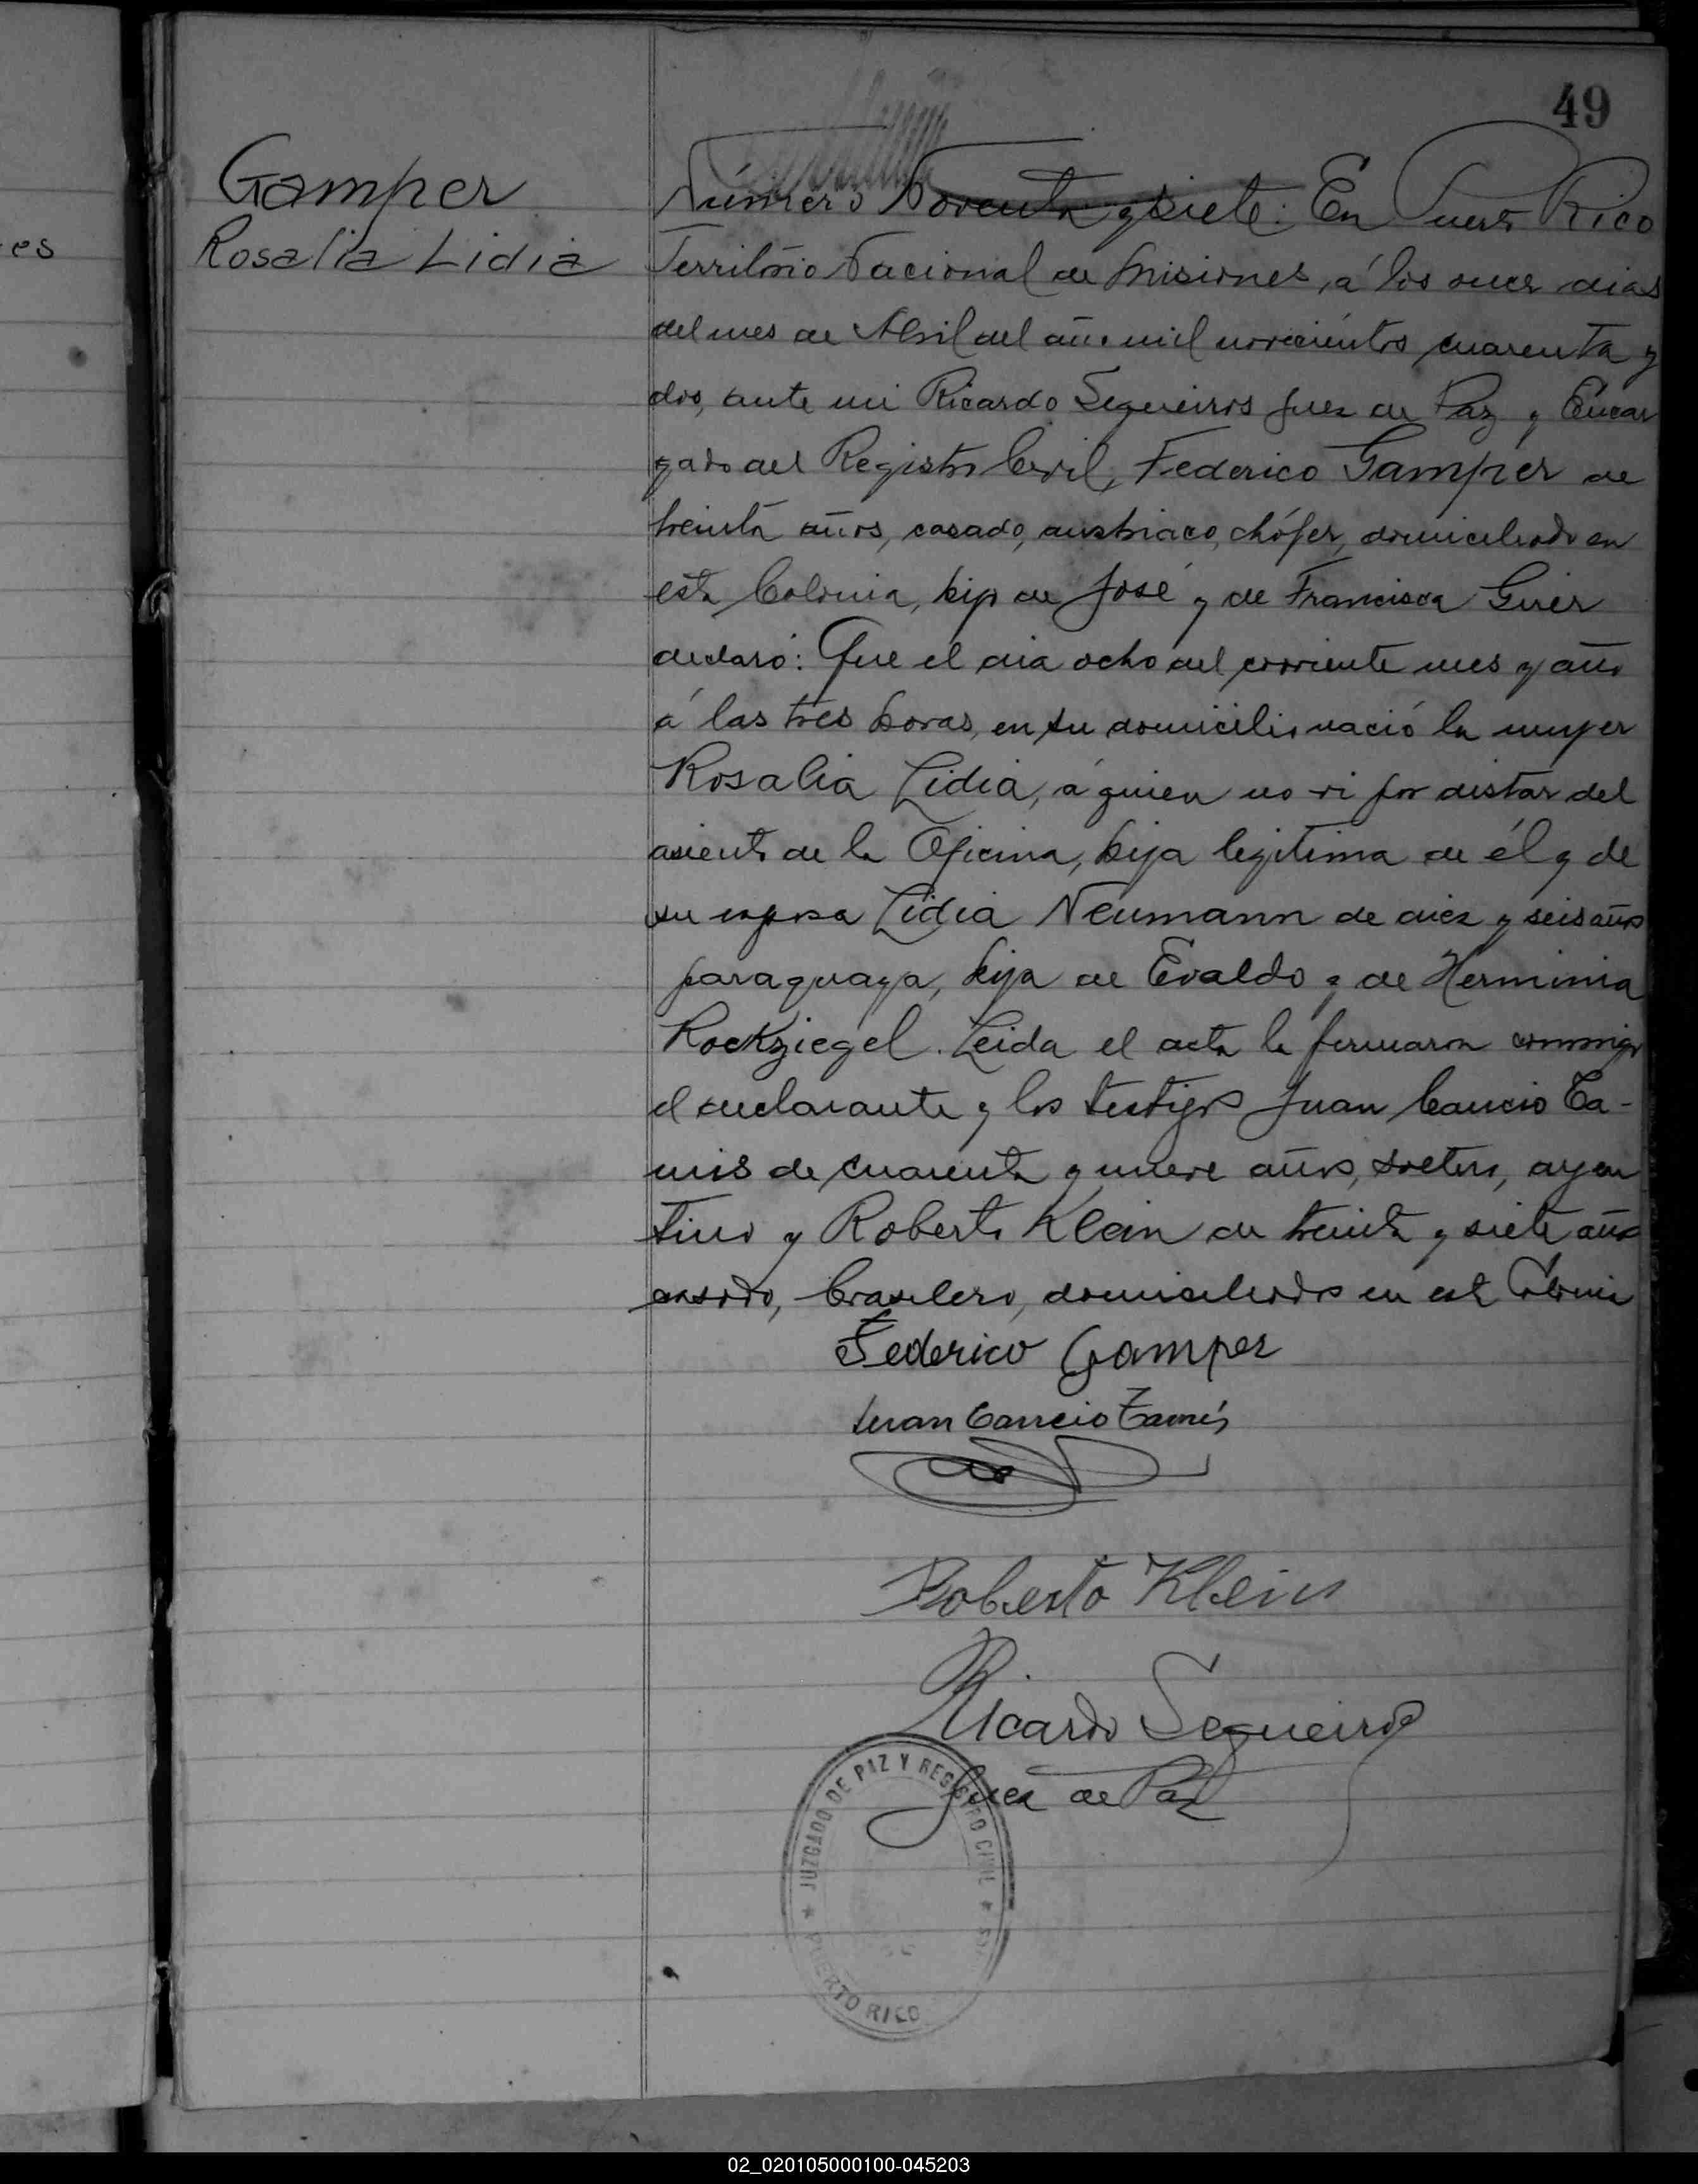 49
es
Gamper
Rosalia Lidia
Número Noventa y siete: En Puerto Rico
Territorio Nacional de Misiones, á los once dias
del mes de Abril del año mil novecientos cuarenta y
dos, ante mi Ricardo Sequeiros Juez de Paz y Encar
gado del Registro Civil, Federico Gamper de
treinta años, casado, austriaco, chófer, domiciliado en
esta Colonia, hijo de José y de Francisca
declaró: Que el dia ocho del corriente mes y año
á las tres horas, en su domicilio nació la mujer
Rosalia Lidia, á quien no vi por distar del
asiento de la Oficina, hija legitima de él y de
su esposa Lidia Neumann de diez y seis años
paraguaya, hija de Evaldo y de Herminia
Rockziegel. Leida el acta la firmaron conmigo
el declarante y los testigos Juan Cancio Ta-
mis de cuarenta y nueve años, soltero, argen
tino y Roberto Klein de treinta y siete años
casado, brasilero, domiciliados en esta Colonia
Federico Gamper
Juan Cancio Tamis
Roberto Klein
Ricardo Sequeiros
Juez de Paz
JUZGADO DE PAZ Y REGISTRO CIVIL
PUERTO RICO
02_020105000100-045203